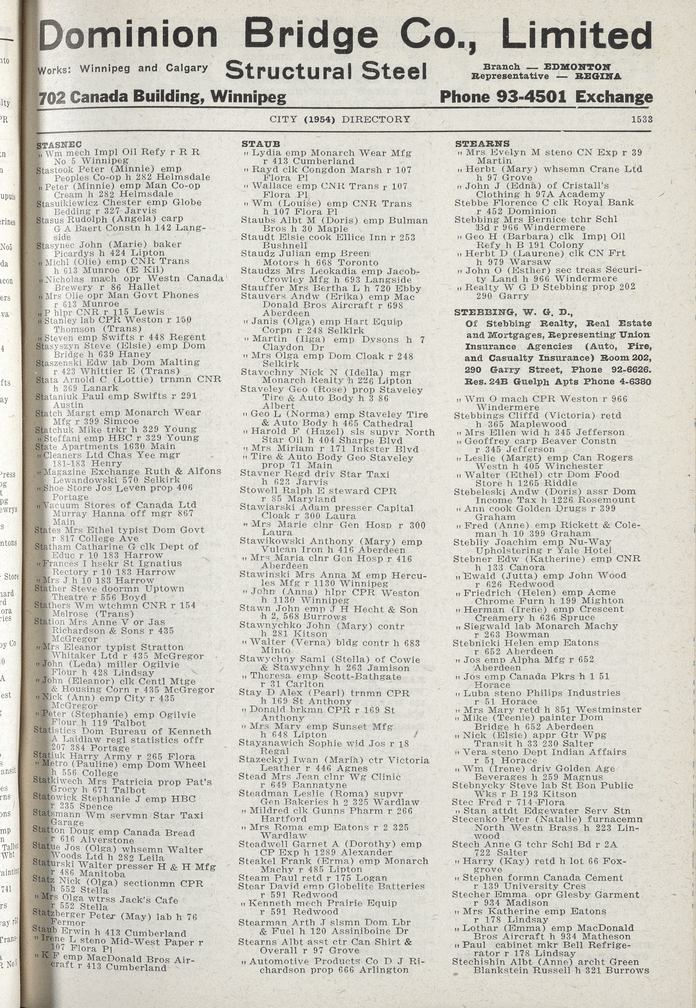 Dominion Bridge Co., Limited
Works: Winnipeg and Calgary Structural Steel Branch — EDMONTON
Representative — REGINA
702 Canada Building, Winnipeg Phone 93-4501 Exchange
CITY (1954) DIRECTORY 1533
STASNEC
" Wm mech Impl Oil Refy r R R
No 5 Winnipeg
Stastook Peter (Minnie) emp
Peoples Co-op h 282 Helmsdale
" Peter (Minnie) emp Man Co-op
Cream h 282 Helmsdale
Stasulkiewicz Chester emp Globe
Bedding r 327 Jarvis
Stasus Rudolph (Angela) carp
G A Baert Constn h 142 Lang-
side
Stasynec John (Marie) baker
Picardys h 424 Lipton
" Michl (Olie) emp CNR Trans
h 613 Munroe (E Kil)
" Nicholas mach opr Westn Canada
Brewery r 86 Hallet
" Mrs Olie opr Man Govt Phones
r 613 Munroe
" P hlpr CNR r 115 Lewis
" Stanley lab CPR Weston r 150
Thomson (Trans)
" Steven emp Swifts r 448 Regent
Stasyszyn Steve (Elsie) emp Dom
Bridge h 639 Haney
Staszenski Edw lab Dom Malting
r 423 Whittier E (Trans)
Stata Arnold C (Lottie) trnmn CNR
h 369 Lanark
Stataniuk Paul emp Swifts r 291
Austin
Statch Margt emp Monarch Wear
Mfg r 399 Simcoe
Statchuk Mike trkr h 329 Young
" Steffani emp HBC r 329 Young
State Apartments 1630 Main
" Cleaners Ltd Chas Yee mgr
181-183 Henry
" Magazine Exchange Ruth & Alfons
Lewandowski 570 Selkirk
" Shoe Store Jos Leven prop 406
Portage
" Vacuum Stores of Canada Ltd
Murray Hanna Cf mgr 867
Main
States Mrs Ethel typist Dom Govt
r 817 College Ave
Statham Catharine G clk Dept of
Educ r 10 183 Harrow
" Frances I hsekr St Ignatius
Rectory r 10 183 Harrow
" Mrs J h 10 183 Harrow
Stather Steve doormn Uptown
Theatre r 556 Boyd
Stathers Wm wtchmn CNR r 154
Melrose (Trans)
Station Mrs Anne V or Jas
Richardson & Sons r 435
McGregor
" Mrs Eleanor typist Stratton
Whitaker Ltd r 435 McGregor
" John (Leda) miller Ogilvie
Flour h 428 Lindsay
" John (Eleanor) clk Centl Mtge
& Housing Corn r 435 McGregor
" Nick (Ann) emp City r 435
McGregor
" Peter (Stephanie) emp Ogilvie
Flour h 119 Talbot
Statistics Dom Bureau of Kenneth
A Laidlaw regl statistics offr
207 384 Portage
Statiuk Harry Army r 265 Flora
" Metro (Pauline) emp Dom Wheel
h 556 College
Statkiwech Mrs Patricia prop Pat's
Grocy h 671 Talbot
Statowick Stephanie J emp HBC
r 235 Spence
Statsmann Wm servmn Star Taxi
Garage
Statton Doug emp Canada Bread
r 616 Alverstone
Statue Jos (Olga) whsemn Walter
Woods Ltd h 282 Leila
Staturski Walter presser H & H Mfg
r 486 Manitoba
Statz Nick (Olga) sectionmn CPR
h 552 Stella
" Mrs Olga wtrss Jack's Cafe
r 552 Stella
Statzberger Peter (May) lab h 76
Fermor
Staub Erwin h 413 Cumberland
" Irene L steno Mid-West Paper r
107 Flora Pl
" K F emp MacDonald Bros Air-
craft r 413 Cumberland
STAUB
" Lydia emp Monarch Wear Mfg
r 413 Cumberland
" Rayd clk Congdon Marsh r 107
Flora Pl
" Wallace emp CNR Trans r 107
Flora Pl
" Wm (Louise) emp CNR Trans
h 107 Flora Pl
Staubs Albt M (Doris) emp Bulman
Bros h 30 Maple
Staudt Elsie cook Ellice Inn r 253
Bushnell
Staudz Julian emp Breen
Motors h 668 Toronto
Staudzs Mrs Leokadia emp Jacob-
Crowley Mfg h 693 Langside
Stauffer Mrs Bertha I h 720 Ebby
Stauvers Andw (Erika) emp Mac
Donald Bros Aircraft r 698
Aberdeen
" Janis (Olga) emp Hart Equip
Corpn r 248 Selkirk
" Martin (Ilga) emp Dysons h 7
Claydon Dr
" Mrs Olga emp Dom Cloak r 248
Selkirk
Stavechny Nick N (Idella) mgr
Monarch Realty h 226 Lipton
Staveley Geo (Rose) prop Staveley
Tire & Auto Body h 3 86
Albert
" Geo L (Norma) emp Staveley Tire
& Auto Body h 465 Cathedral
" Harold F (Hazel) sls supvr North
Star Oil h 404 Sharpe Blvd
" Mrs Miriam r 171 Inkster Blvd
" Tire & Auto Body Geo Staveley
prop 71 Main
Stavner Regd driv Star Taxi
h 623 Jarvis
Stowell Ralph E steward CPR
r 85 Maryland
Stawiarski Adam presser Capital
Cloak r 300 Laura
" Mrs Marie clnr Gen Hosp r 300
Laura
Stawikowski Anthony (Mary) emp
Vulcan Iron h 416 Aberdeen
" Mrs Maria clnr Gen Hosp r 416
Aberdeen
Stawinski Mrs Anna M emp Hercu-
les Mfg r 1130 Winnipeg
" John (Anna) hlpr CPR Weston
h 1130 Winnipeg
Stawn John emp J H Hecht & Son
h 2, 568 Burrows
Stawnychko John (Mary) contr
h 281 Kitson
" Walter (Verna) bldg contr h 683
Minto
Stawychny Saml (Stella) of Cowie
& Stawychny h 263 Jamison
" Theresa emp Scott-Bathgate
r 31 Carlton
Stay D Alex (Pearl) trnmn CPR
h 169 St Anthony
" Donald brkmn CPR r 169 St
Anthony
" Mrs Mary emp Sunset Mfg
h 648 Lipton
Stayanawich Sophie wid Jos r 18
Regal
Stazeckyj Iwan (Maria) ctr Victoria
Leather r 446 Agnes
Stead Mrs Jean clnr Wg Clinic
r 649 Bannatyne
Steadman Leslie (Roma) supvr
Gen Bakeries h 2 325 Wardlaw
" Mildred clk Gunns Pharm r 266
Hartford
" Mrs Roma emp Eatons r 2 325
Wardlaw
Steadwell Garnet A (Dorothy) emp
CP Exp h 1289 Alexander
Steakel Frank (Erma) emp Monarch
Machy r 485 Lipton
Steam Paul retd r 175 Logan
Stear David emp Globelite Batteries
r 591 Redwood
" Kenneth mech Prairie Equip
r 591 Redwood
Stearman Arth J slsmn Dom Lbr
& Fuel h 120 Assiniboine Dr
Stearns Albt asst ctr Can Shirt &
Overall r 97 Grove
" Automotive Products Co D J Ri-
chardson prop 666 Arlington
STEARNS
" Mrs Evelyn M steno CN Exp r 39
Martin
" Herbt (Mary) whsemn Crane Ltd
h 97 Grove
" John J (Edna) of Cristall's
Clothing h 97A Academy
Stebbe Florence C clk Royal Bank
r 452 Dominion
Stebbing Mrs Bernice tchr Schl
Bd r 966 Windermere
" Geo H (Barbara) clk Impl Oil
Refy h B 191 Colony
" Herbt D (Laurene) clk CN Frt
h 979 Warsaw
" John O (Esther) sec treas Securi-
ty Land h 966 Windermere
" Realty W G D Stebbing prop 202
290 Garry
STEBBING, W. G. D.,
Of Stebbing Realty, Real Estate
and Mortgages, Representing Union
Insurance Agencies (Auto, Fire,
and Casualty Insurance) Room 202,
290 Garry Street, Phone 92-6626.
Res. 24B Guelph Apts Phone 4-6380
" Wm O mach CPR Weston r 966
Windermere
Stebbings Cliffd (Victoria) retd
h 365 Maplewood
" Mrs Ellen wid h 345 Jefferson
" Geoffrey carp Beaver Constn
r 345 Jefferson
" Leslie (Margt) emp Can Rogers
Westn h 405 Winchester
" Walter (Ethel) ctr Dom Food
Store h 1265 Riddle
Stebeleski Andw (Doris) assr Dom
Income Tax h 1226 Rosemount
" Ann cook Golden Drugs r 399
Graham
" Fred (Anne) emp Rickett & Cole-
man h 10 399 Graham
Stebliy Joachim emp Nu-Way
Upholstering r Yale Hotel
Stebner Edw (Katherine) emp CNR
h 133 Canora
" Ewald (Jutta) emp John Wood
r 626 Redwood
" Friedrich (Helen) emp Acme
Chrome Furn h 199 Mighton
" Herman (Irene) emp Crescent
Creamery h 636 Spruce
" Siegwald lab Monarch Machy
r 263 Bowman
Stebnicki Helen emp Eatons
r 652 Aberdeen
" Jos emp Alpha Mfg r 652
Aberdeen
" Jos emp Canada Pkrs h 1 51
Horace
" Luba steno Philips Industries
r 51 Horace
" Mrs Mary retd h 851 Westminster
" Mike (Teenie) painter Dom
Bridge h 652 Aberdeen
" Nick (Elsie) appr Gtr Wpg
Transit h 33 230 Salter
" Vera steno Dept Indian Affairs
r 51 Horace
" Wm (Irene) driv Golden Age
Beverages h 259 Magnus
Stebnycky Steve lab St Bon Public
Wks r B 193 Kitson
Stec Fred r 714 Flora
" Stan attdt Edgewater Serv Stn
Stecenko Peter (Natalie) furnacemn
North Westn Brass h 223 Lin-
wood
Stech Anne G tchr Schl Bd r 2A
722 Salter
" Harry (Kay) retd h lot 66 Fox-
grove
" Stephen formn Canada Cement
r 139 University Cres
Stecher Emma opr Glesby Garment
r 934 Madison
" Mrs Katherine emp Eatons
r 178 Lindsay
" Lothar (Emma) emp MacDonald
Bros Aircraft h 934 Matheson
" Paul cabinet mkr Bell Refrige-
rator r 178 Lindsay
Stechishin Albt (Anne) archt Green
Blankstein Russell h 321 Burrows